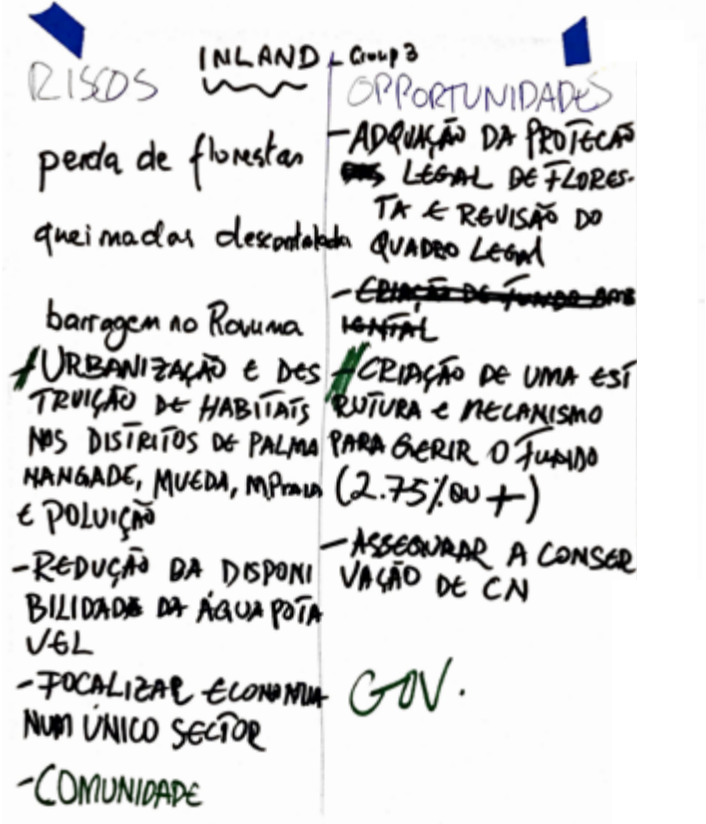 INLAND - Group 3
RISCOS
perda de florestas
queimadas descontroladas
barragem no Rovuma
URBANIZAÇÃO E DES
TRUIÇÃO DE HABITATS
NOS DISTRITOS DE PALMA
NANGADE, MUEDA, MPraia
E POLUIÇÃO
-REDUÇÃO DA DISPONI
BILIDADE DA ÁGUA POTA
VEL
-FOCALIZAR ECONOMIA
NUM ÚNICO SECTOR
-COMUNIDADE
OPPORTUNIDADES
-ADQUAÇÃO DA PROTECAÕ
LEGAL DE FLORES-
TA E REVISÃO DO
QUADRO LEGAL
-CRIAÇÃO DE FUNDO AMB
IENTAL
-CRIAÇÃO DE UMA EST
RUTURA E MECANISMO
PARA GERIR O FUNDO
(2.75% OU +)
-ASSEGURAR A CONSER
VAÇÃO DE CN
GOV.